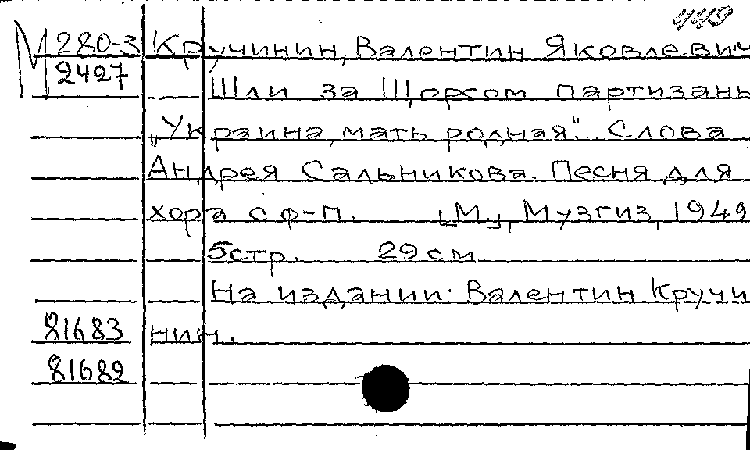 449
М 280-3 Кручинин, Валентин Яковлевич
2427 Шли за Щорсом партизаны
„Украина, мать родная". Слова
Андрея Сальникова. Песня для
хора с ф-п. [М], Музгиз, 1949
5стр. 29 см
На издании: Валентин Кручи
81683 нин.
81682